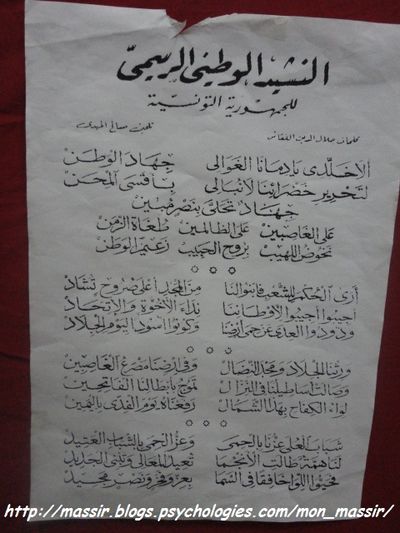 النشيد الوطني الرسمي
للجمهورية التونسية
كلمات جلال الدين النقاش    تلحين صالح المهدي
ألا خلّدي يا دمانا الغوالي    جهاد الوطن
لتحرير خضرائنا لا نبالي    بأقسى المحن
جهاد تحلّى بنصر مبين
على الغاصبين على الظالمين    طغاة الزمن
نخوض اللهيب بروح الحبيب    زعيم الوطن
أرى الحكم للشعب فابنوا لنا    من المجد أعلى صروح تشاد
أجيبوا أجيبوا لأوطاننا    نداء الأخوة والاتحاد
وذودوا العدى عن حمى أرضنا    وكونوا أسودا ليوم الجلاد
ورثنا الجلاد ومجد النضال    وفي أرضنا مصرع الغاصبين
وصالت أساطيلنا في النزال    تموج بأبطالنا الفاتحين
لواء الكفاح بهذا الشمال    رفعناه يوم الفدى باليمين
شباب العلى عزنا بالحمى    وعز الحمى بالشباب العتيد
لنا همة طالت الأنجما    تعيد المعالي وتبني الجديد
فحيوا اللوا خافقا في السما    بعز وفخر ونصر مجيد
http://massir.blogs.psychologies.com/mon_massir/